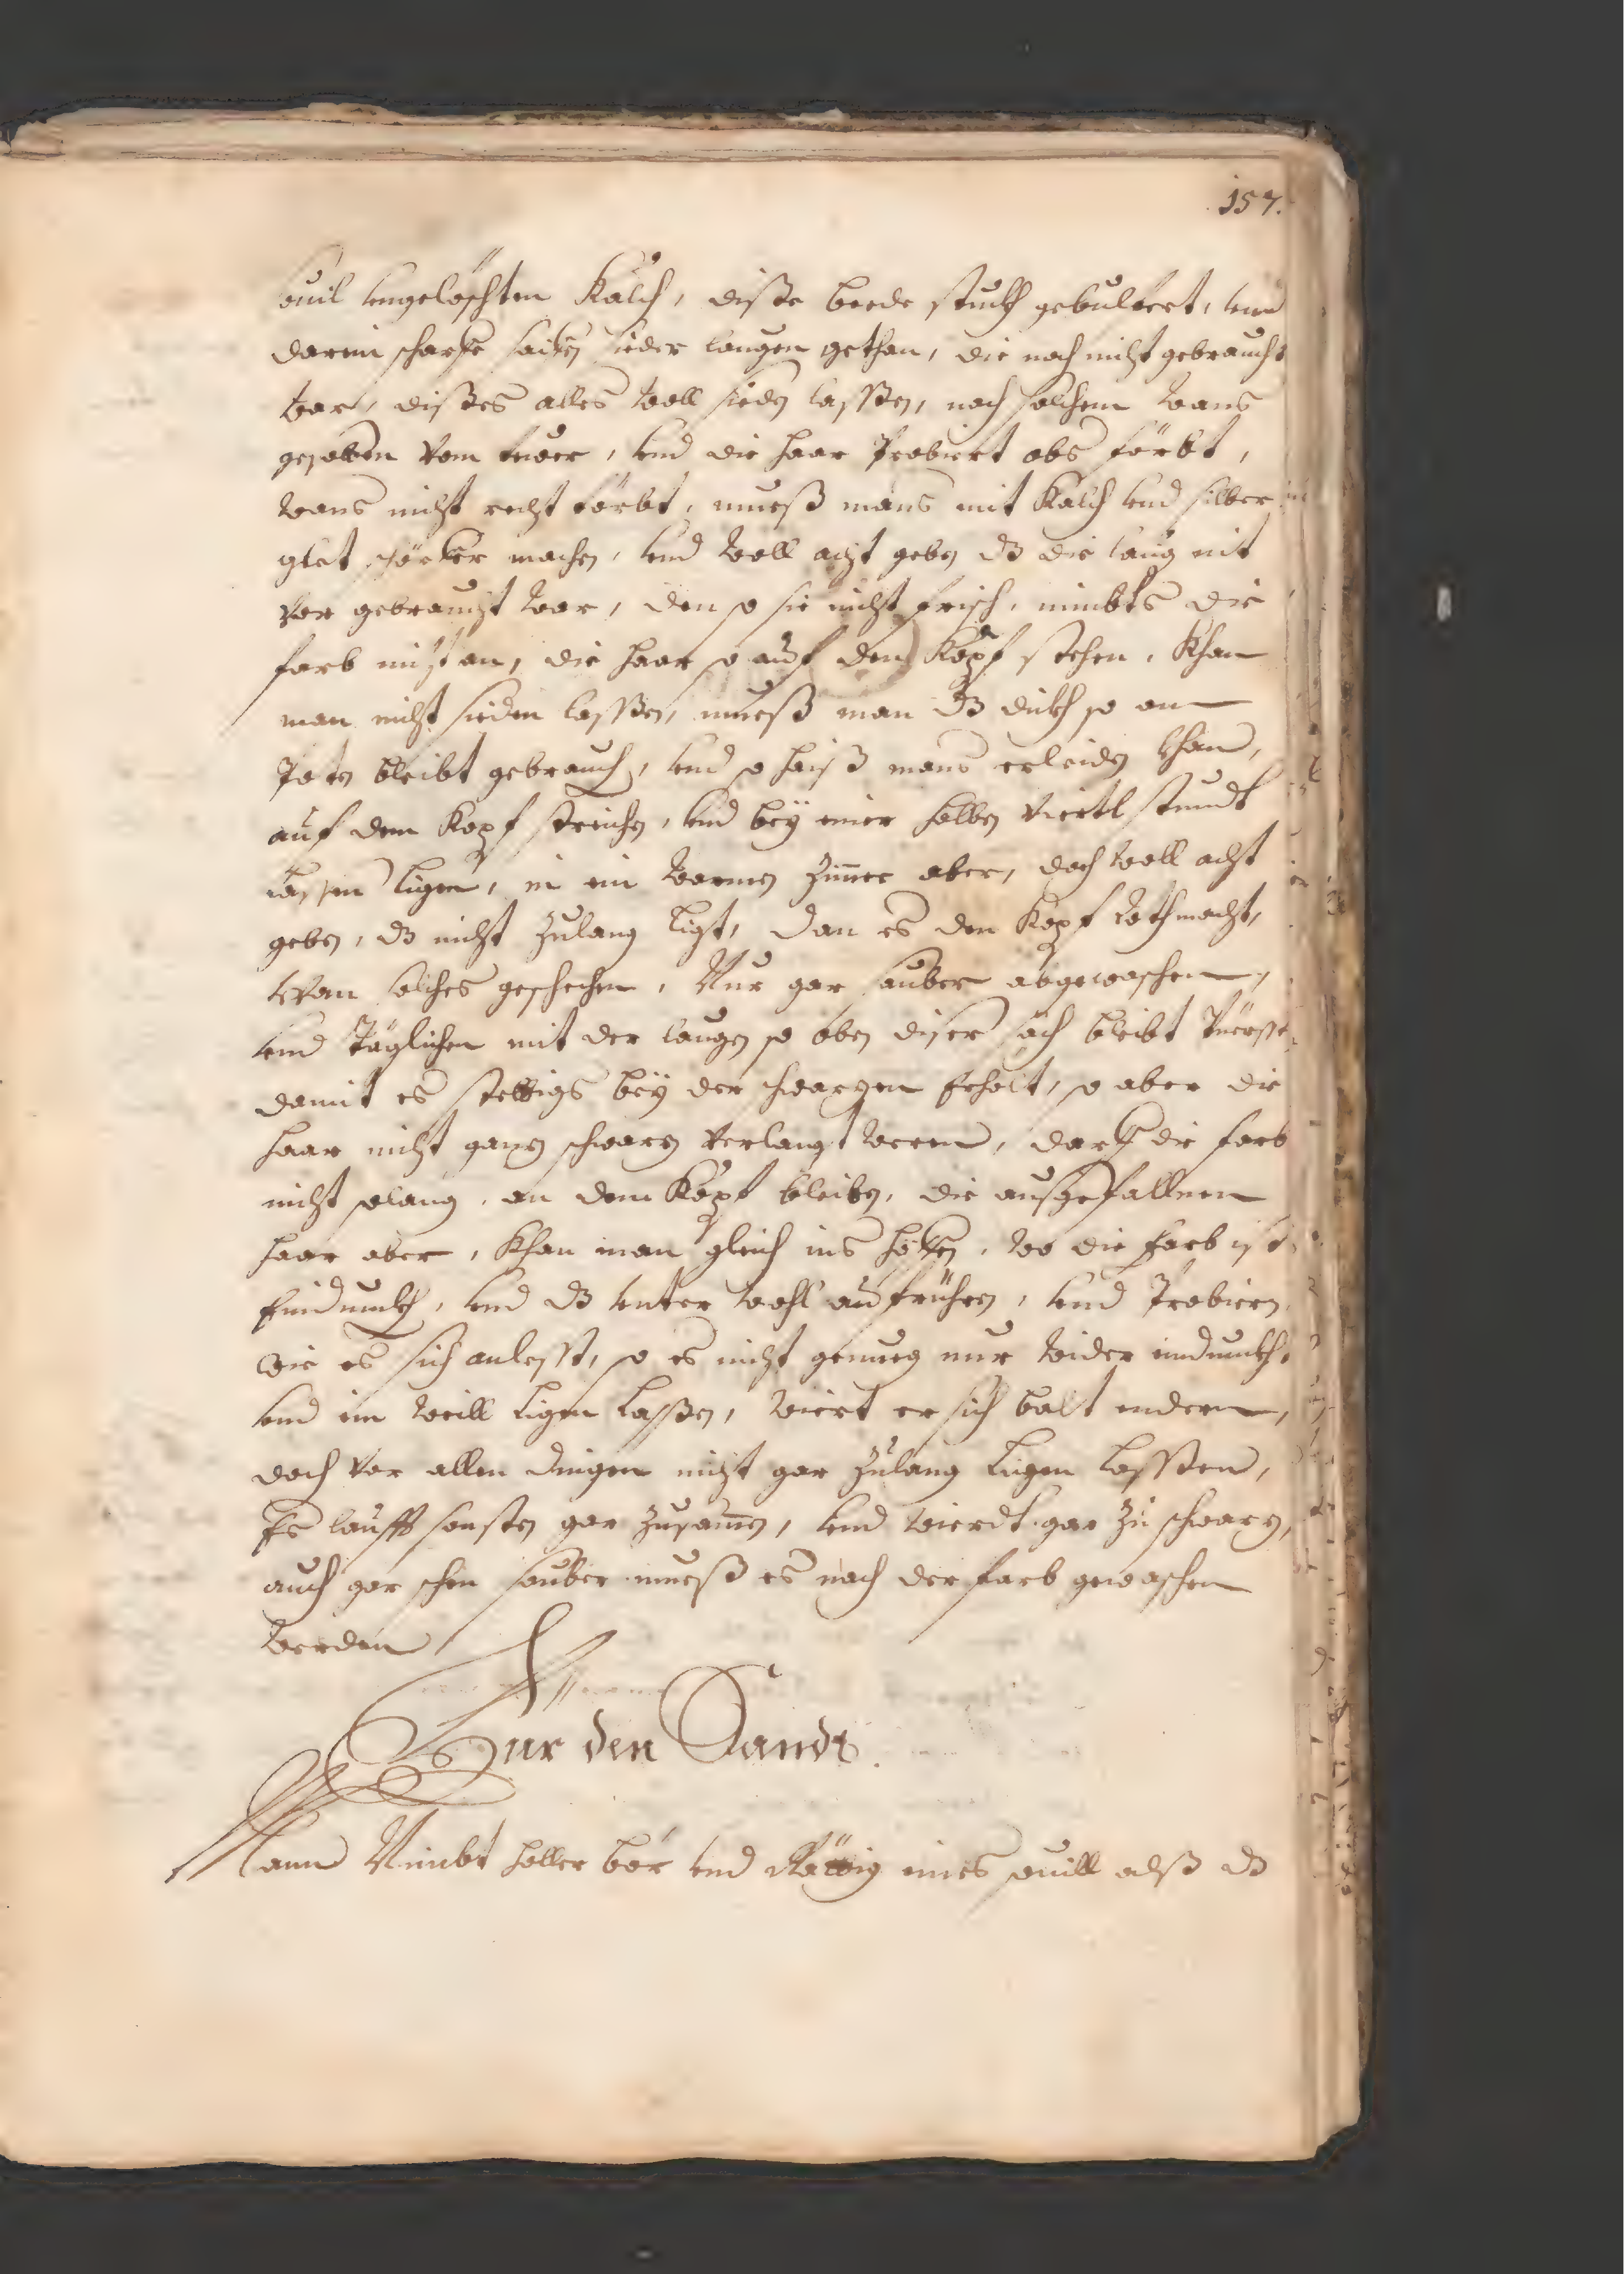 157.
souil vngelöschten Kalch, dißte beede stuckh gebulfert, vnd
darein scharfe saiffen sieder laugen gethan, die noch nicht gebraucht
war, dißes alles woll sieden lassßen, nach solchem wans
gehoben vom feuer, vnd die haar Probiert obs förbt,
wans nicht recht förbt, mueß mans mit Kalch vnd silber
glet störkher machen, vnd woll acht geben dz die laug nit
vor gebraucht war, den so sie nicht frisch, nimbts die
farb nicht an, die haar so auf den Kopf stehen, Khan
man nicht sieden lasßen, mueß man dz dickh so am
Poten bleibt gebrauchen, vnd so haiß mans erleiden khan,
auf dem Kopf streichen, vnd beÿ einer halben Viertl stundt
lassen ligen, in ein warmen Zimer aber, doch woll acht
geben, dz nicht Zulang ligt, dan es den Kopf rothmacht,
wan solches geschechen, Nur gar sauber abgewaschen,
vnd Täglichen mit der laugen so oben diser sach bleibt
damit es stettigs beÿ der schwarzen Erhalt, so aber die
haar nicht ganz schwarz verlangt weren, darff die farb
nicht solang, an dem Kopf bleiben, die außgefallnen
haar aber, Khan man gleich ins heffen, wo die farb ist
Eindunckh, vnd dz vnter wohl aufrühren, vnd Probieren
wie es sich anlesst, so es nicht genueg nur wider eindunckhen
vnd ein weill ligen laßen, wiert er sich balt endern,
doch vor allen dingen nicht gar Zulang ligen lassßen,
Es laufft sonsten gar Zusamen, vnd wierdt gar Zu schwarz,
auch gar schen sauber mueß es nach der farb gewaschen
werden
Fur den Sandt.
Mann Nimbt holler bör vnd Rättig eines souill alß dz